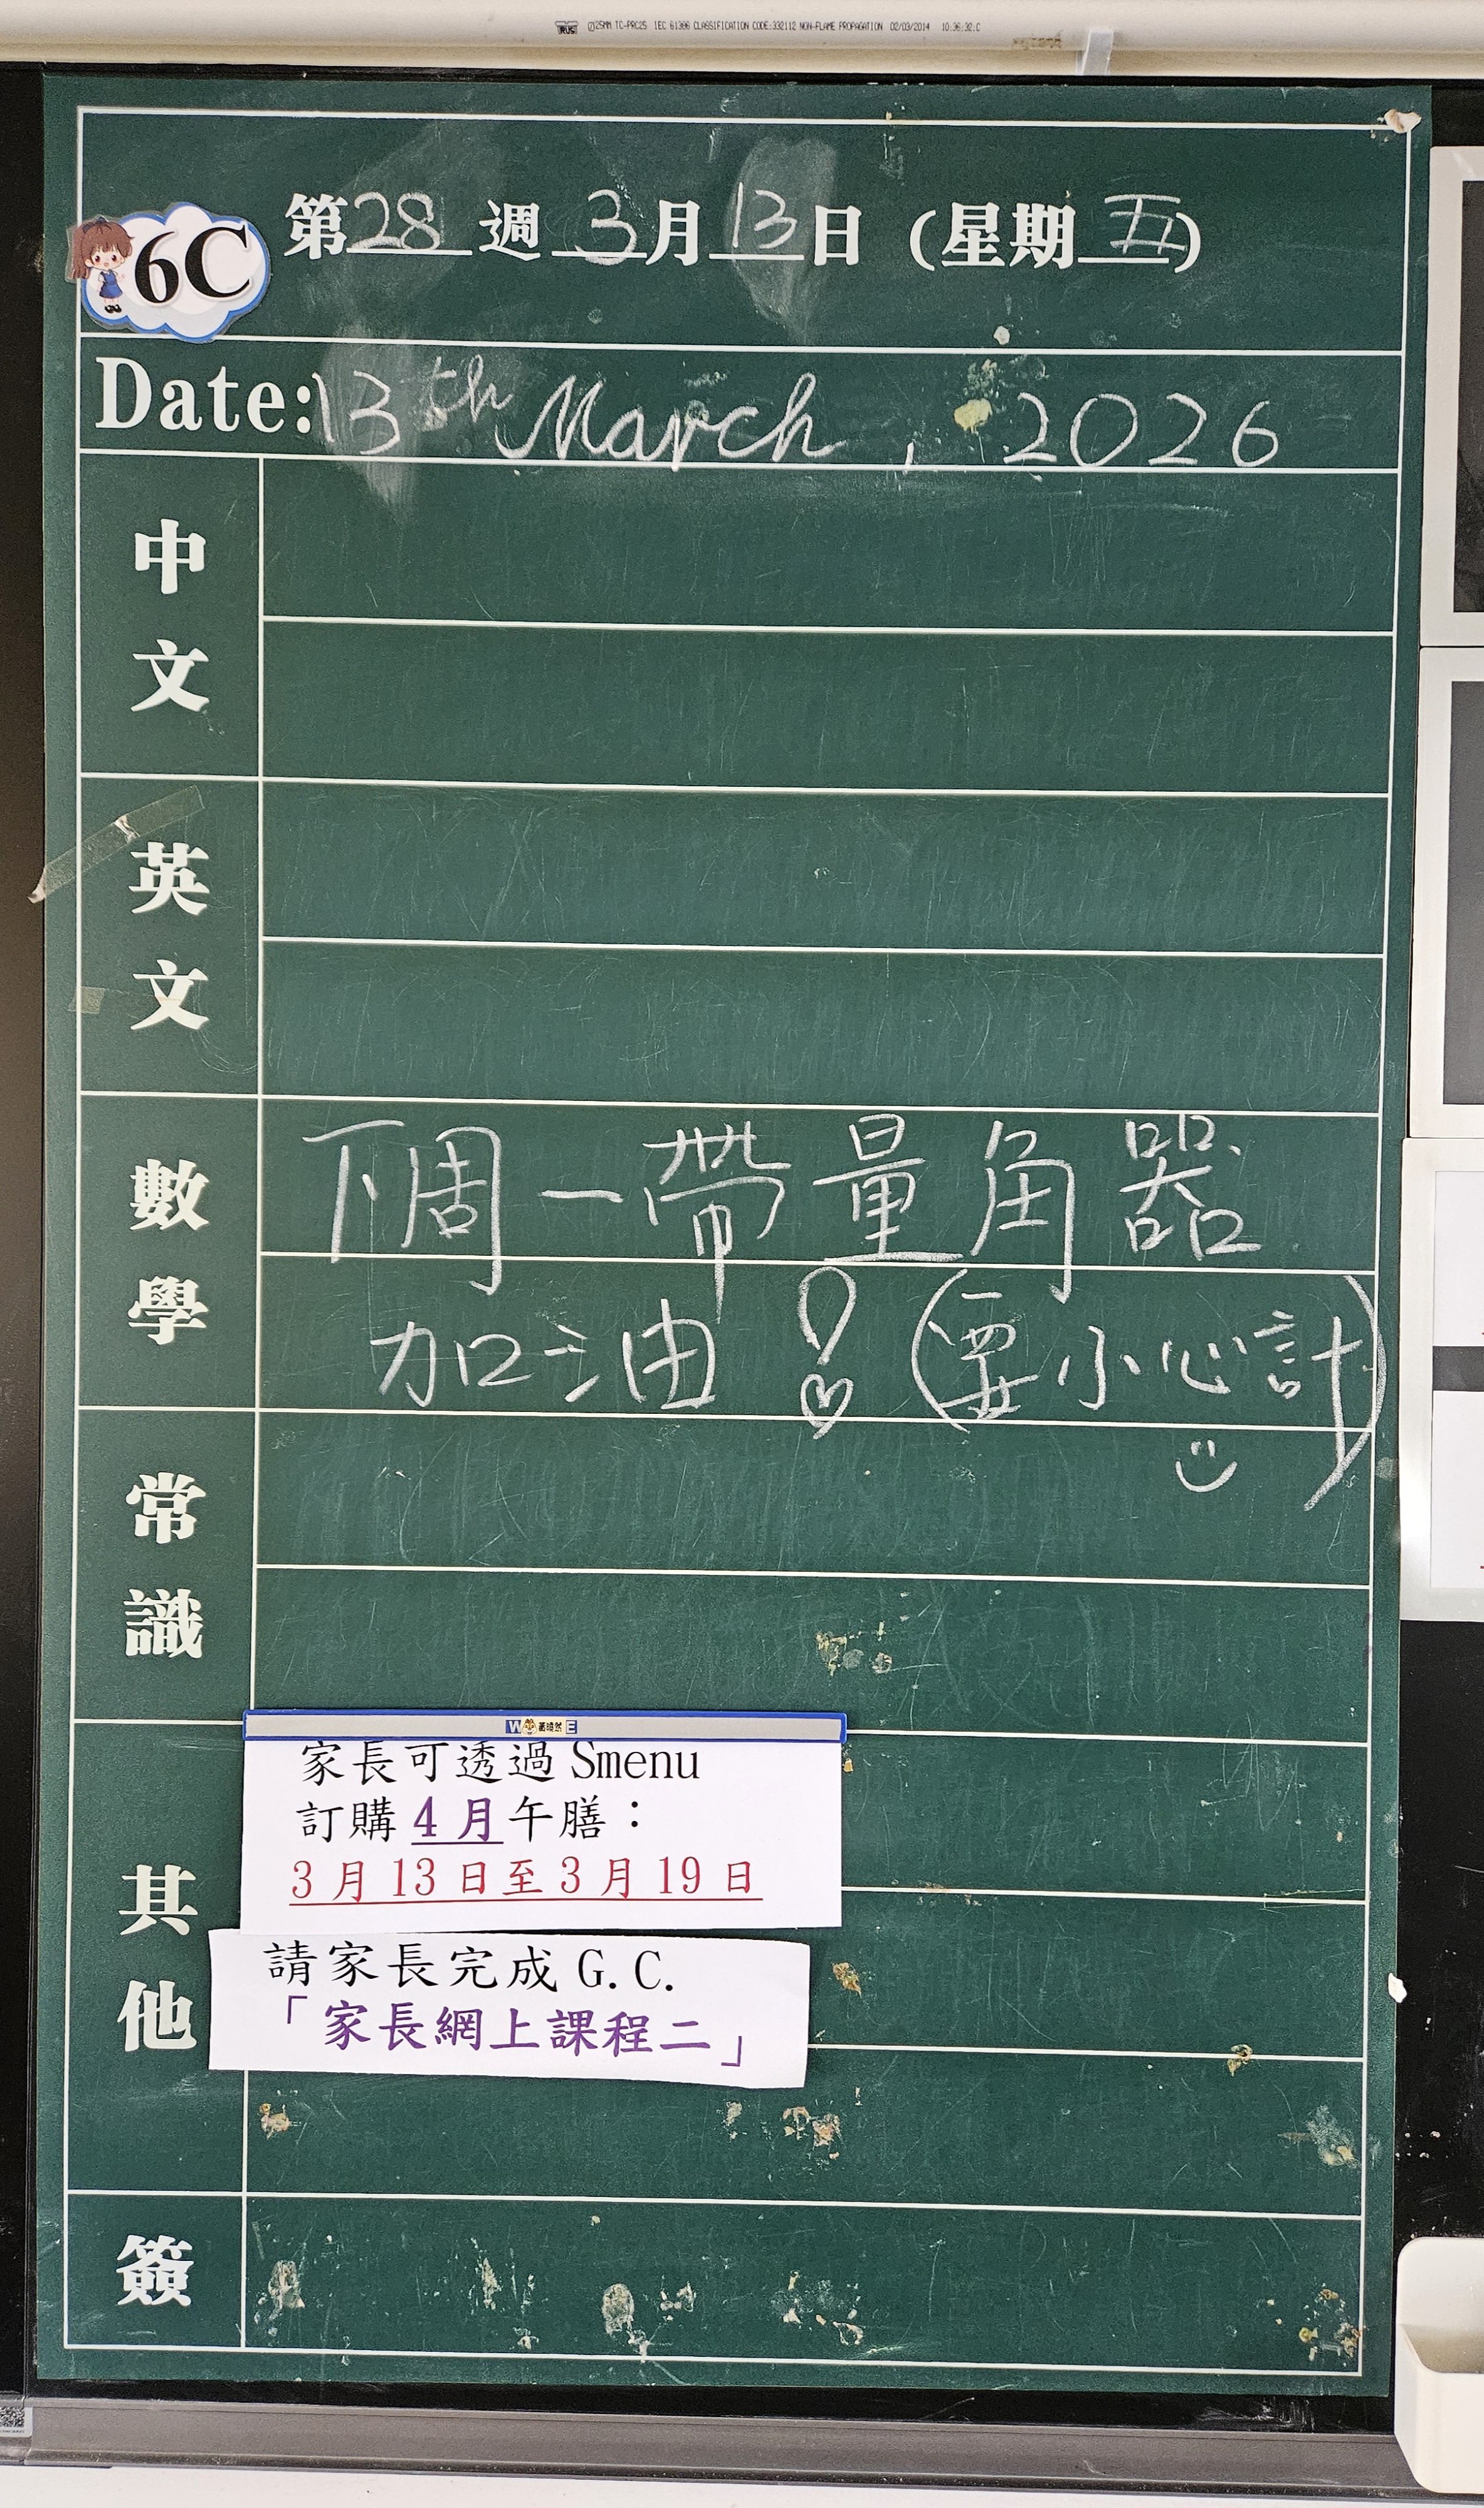 25MM TC-PRC25 IEC 61386 CLASSIFICATION CODE:332112 NON-FLAME PROPAGATION 02/03/2014 10:36:32:C
6C
第28週 3月13日 (星期五)
Date: 13th March, 2026
中文
英文
數學
下周一帶量角器
加油!(要小心計)
常識
其他
家長可透過 Smenu
訂購 4 月午膳：
3 月 13 日至 3 月 19 日
請家長完成 G.C.
「家長網上課程二」
簽